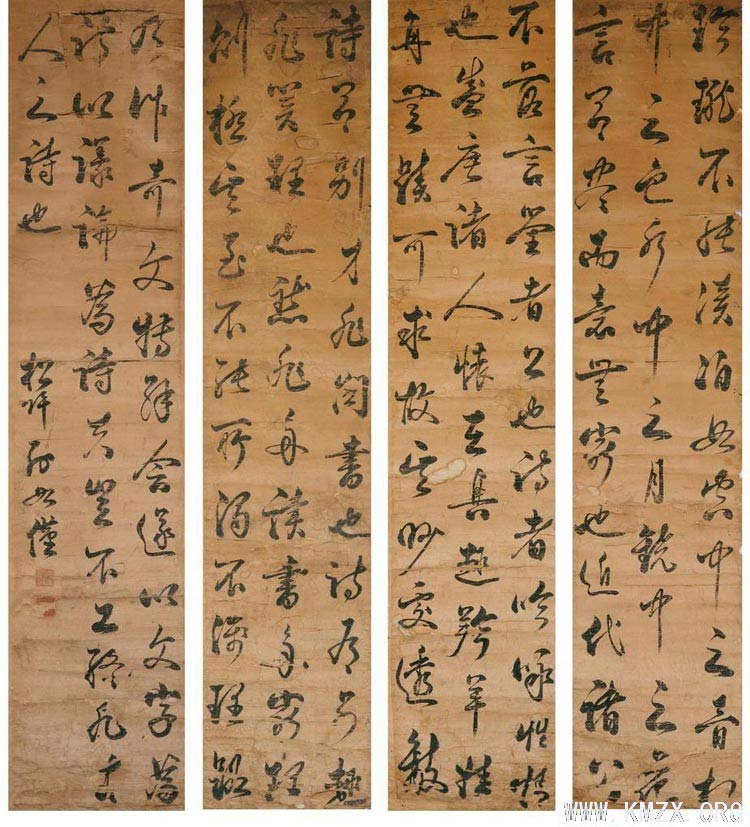 詩有別才非關書也詩有別趣
非關理也然非多讀書多窮理
則極其至不能所謂不涉理路
不落言筌者上也詩者吟詠性情
也盛唐諸人惟在興趣羚羊挂
角無蹟可求故其妙處透徹
玲瓏不能湊泊如空中之音相
中之色水中之月鏡中之象
言有盡而意無窮也近代諸公
乃作奇文特解會遂以文字為
詩以議論為詩夫豈不工終非古
人之詩也
松坪孫如僅
WWW.KMZX.ORG